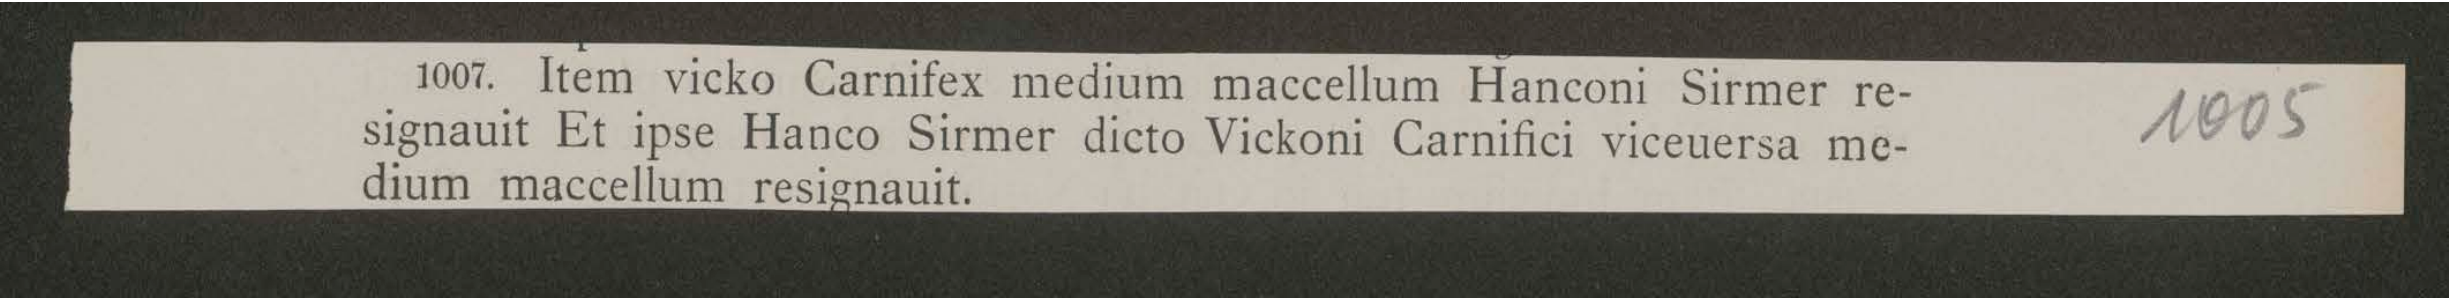 1007. Item vicko Carnifex medium maccellum Hanconi Sirmer re-
signauit Et ipse Hanco Sirmer dicto Vickoni Carnifici viceuersa me-
dium maccellum resignauit.
1005